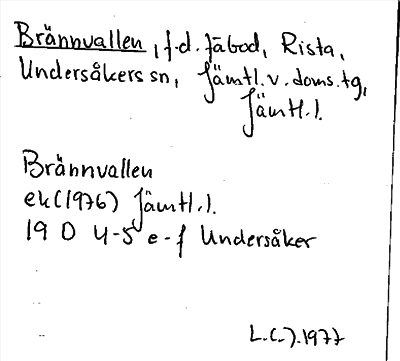 Brännvallen, f.d. fäbod, Rista,
Undersåkers sn, Jämtl. v. doms. tg,
Jämtl. l.
Brännvallen
ek (1976) Jämtl. l.
19 D 4-5 e-f Undersåker
L.C.J. 1977